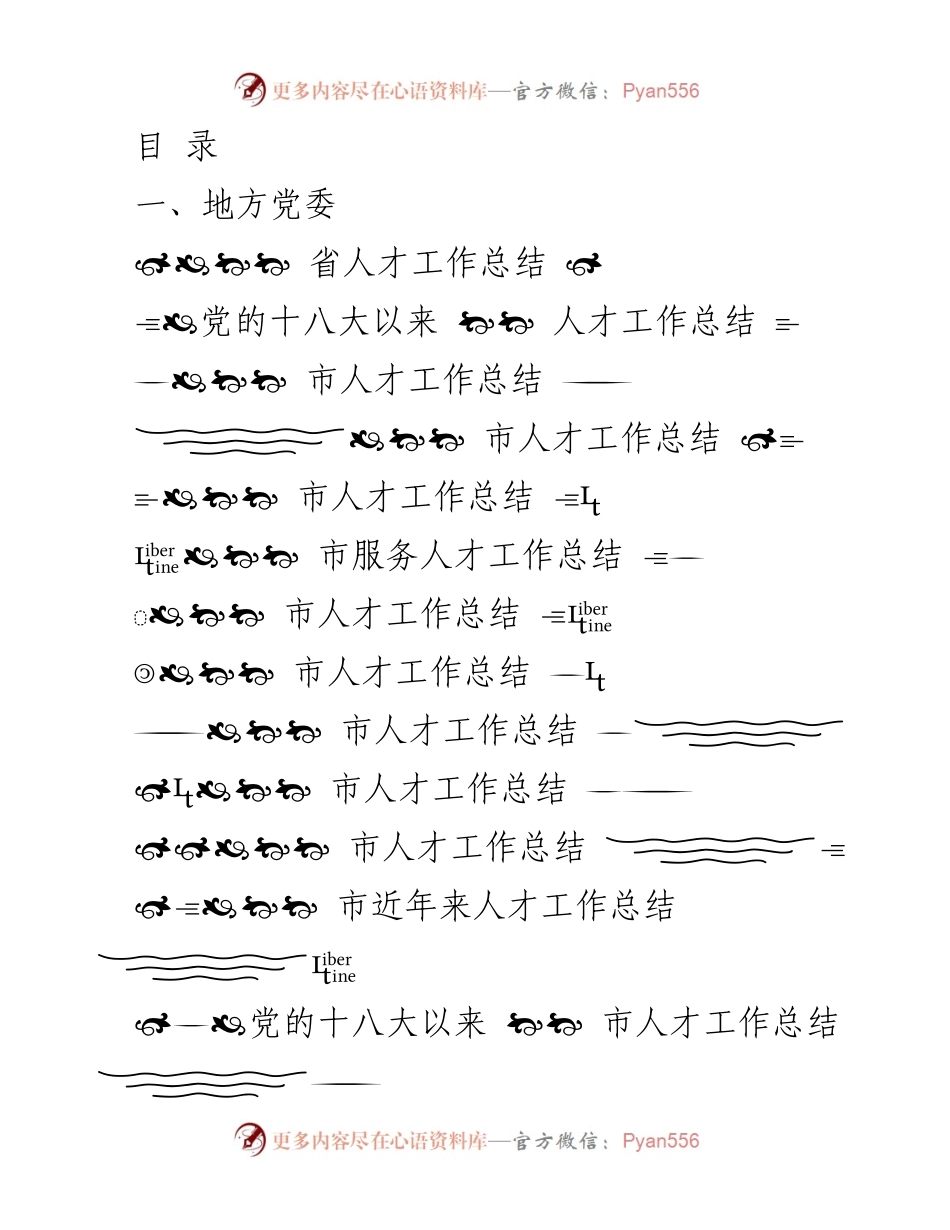 更多内容尽在心语资料库—官方微信：Pyan556
目 录
一、地方党委
省人才工作总结
党的十八大以来 人才工作总结
市人才工作总结
市人才工作总结
市人才工作总结 Lt
Libertine 市服务人才工作总结
市人才工作总结 Libertine
市人才工作总结 Lt
市人才工作总结
Lt 市人才工作总结
市人才工作总结
市近年来人才工作总结
Libertine
党的十八大以来 市人才工作总结
更多内容尽在心语资料库—官方微信：Pyan556